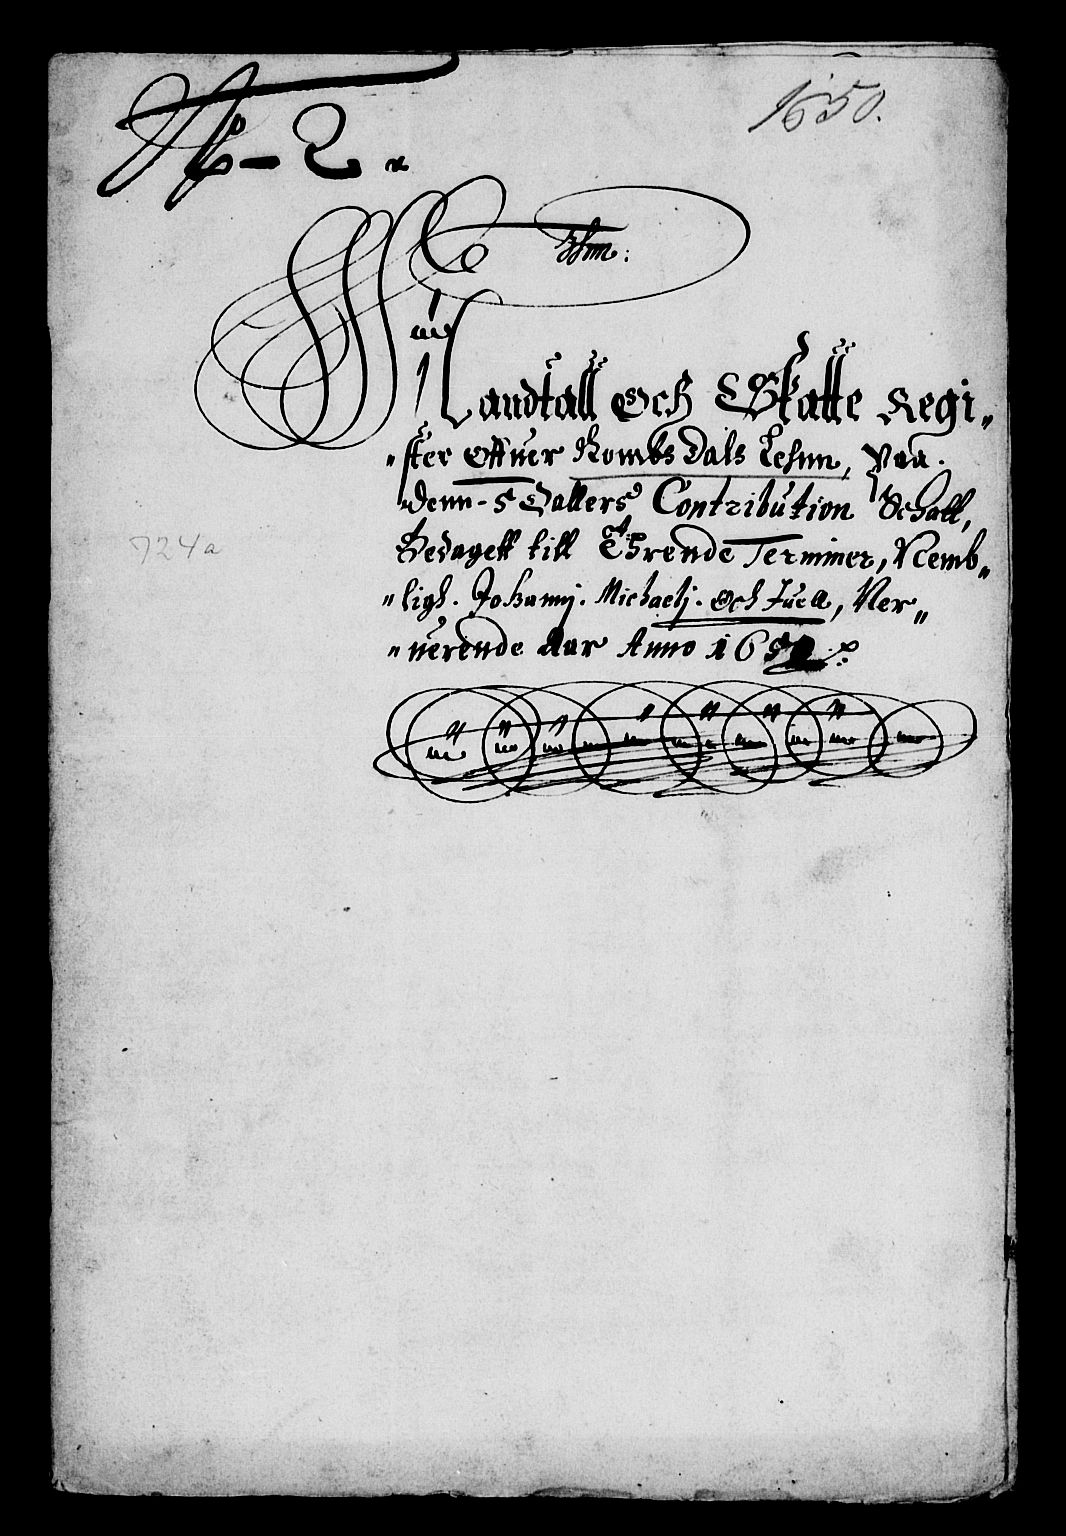 No 2.
1650.
Mandtall Och Skatte Regi„
„ster Offuer Rombsdals Lehnn, Paa.
denn - 5 Dallers Contribution Schatt,
Bedagett till Thrende Terminer, Nemb„
„ligh. Johannj. Michaelj. Och Juell, Ner„
„uerende Aar Anno 1650
724a